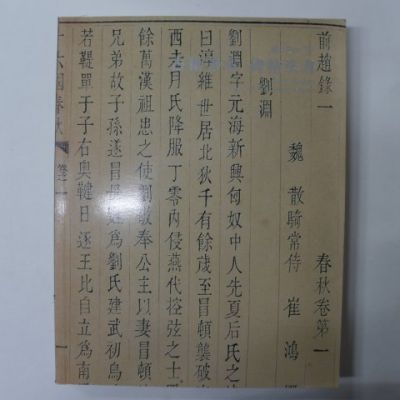 前趙錄一 春秋卷第一
魏 散騎常侍 崔鴻
劉淵
劉淵字元海新興匈奴中人先夏后氏之
曰淳維世居北狄千有餘歲至冒頓襲破
西走月氏降服丁零內侵燕代控弦之士
餘萬漢祖患之使劉敬奉公主以妻冒頓
兄弟故子孫遂冒母姓為劉氏建武初烏
若鞮單于子右奧鞬日逐王比自立為南
十六國春秋 卷一 一